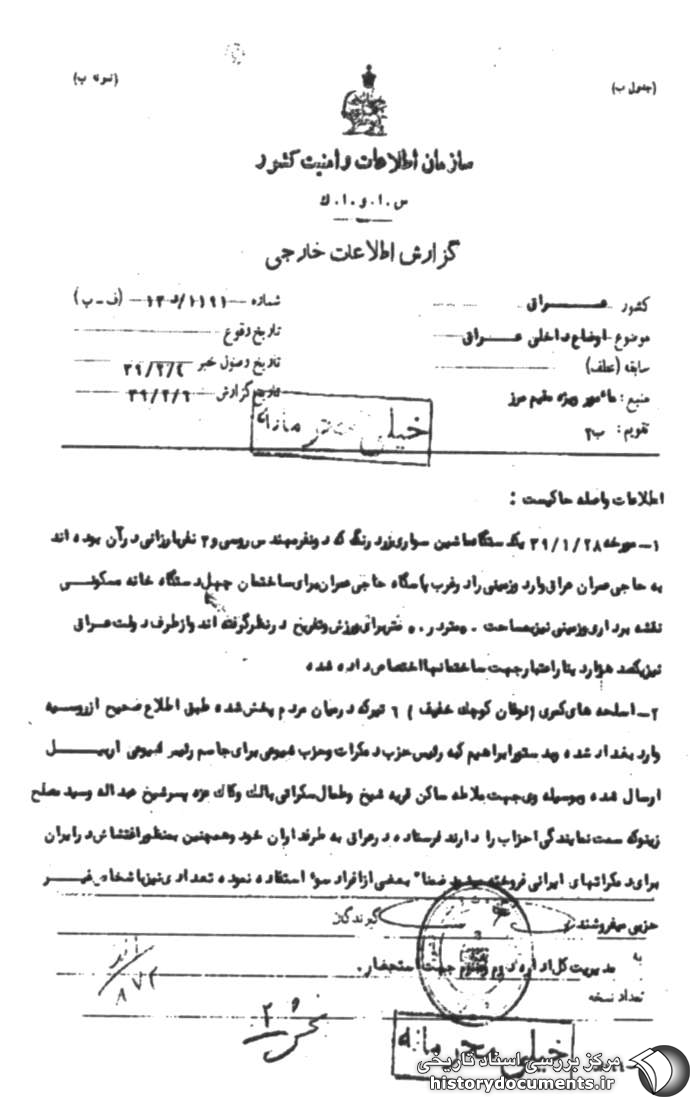 (جدول ب)
(نمونه ب)
سازمان اطلاعات و امنیت کشور
س . ا . و . ا . ك
گزارش اطلاعات خارجی
کشور عراق
موضوع اوضاع داخلی عراق
سابقه (علف)
منبع : مأمور ویژه مقیم مرز
تقویم : ب۲
شماره ۱۱۹۱/د۱۳ (ف - پ)
تاریخ وقوع
تاریخ وصول خبر ۳۹/۲/٤
تاریخ گزارش ۳۹/۲/٦
خیلی محرمانه
اطلاعات واصله حاکیست :
۱- مورخه ۳۹/۱/۲۸ یک دستگاه ماشین سواری زرد رنگ که دو نفر مهندس روسی و ۳ نفر بارزانی در آن بوده اند
به حاجی عمران عراق وارد و زمینی را در غرب پاسگاه حاجی عمران برای ساختمان چهل دستگاه خانه مسکونی
نقشه برداری و زمینی نیز بمساحت متر در متر برای ورزش و تفریح در نظر گرفته اند و از طرف دولت عراق
نیز یکصد هزار دینار اعتبار جهت ساختمانها اختصاص داده شده
۲- اسلحه های کمری (نوغان کوچک خفیف) ٦ تیر که در میان مردم پخش شده طبق اطلاع صحیح از روسیه
وارد بغداد شده و بدستور ابراهیم کبه رئیس حزب دمکرات و حزب شیوعی برای جاسم رئیس شیوعی اربیل
ارسال شده و بوسیله وی جهت ملا طه ساکن قریه شیخ و طمال سکرانی بالك و کاك عزه پسر شیخ عبداله و سید مصلح
زینوکه سمت نمایندگی احزاب را دارند فرستاده در عراق به طرفداران خود و همچنین بمنظور اغتشاش در ایران
برای دمکراتهای ایرانی فروخته میشود ضمنا" بعضی از افراد سوء استفاده نموده تعدادی نیز با شخاص غیر
حزبی میفروشند
گیرندگان
به مدیریت کل اداره دوم و سوم جهت استحضار .
تعداد نسخه
۸۷۲
خیلی محرمانه
مرکز بررسی اسناد تاریخی
historydocuments.ir